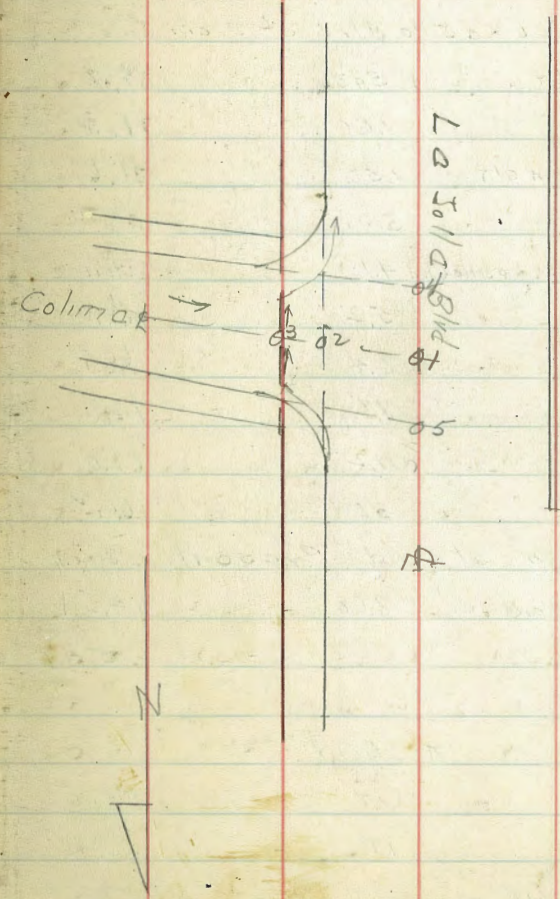 La Jolla Blvd
Colima
3
2
4
1
5
N